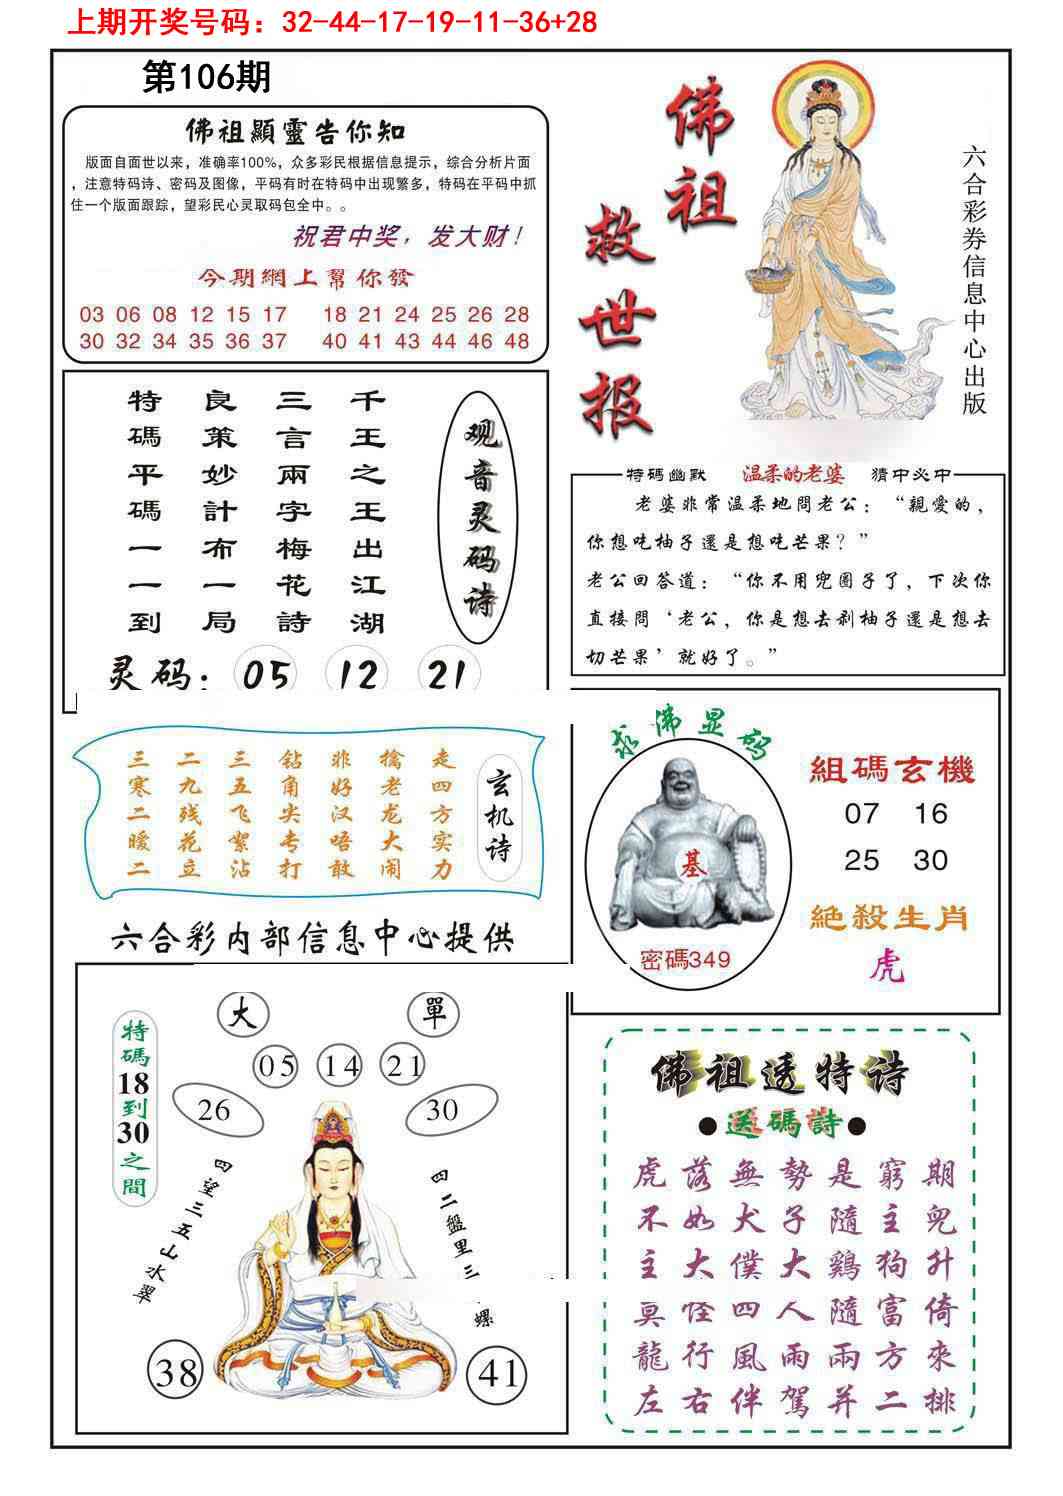 上期开奖号码：32-44-17-19-11-36+28
第106期
佛祖顯靈告你知
版面自面世以来，准确率100%，众多彩民根据信息提示，综合分析片面
，注意特码诗、密码及图像，平码有时在特码中出现繁多，特码在平码中抓
住一个版面跟踪，望彩民心灵取码包全中。。
祝君中奖，发大财！
今期網上幫你發
03 06 08 12 15 17 18 21 24 25 26 28
30 32 34 35 36 37 40 41 43 44 46 48
佛祖
救世报
六合彩券信息中心出版
观音灵码诗
千王之王出江湖
三言兩字梅花詩
良策妙計布一局
特碼平碼一一到
灵码：05 12 21
特碼幽默 温柔的老婆 猜中必中
老婆非常温柔地問老公：“親愛的，
你想吃柚子還是想吃芒果？”
老公回答道：“你不用兜圈子了，下次你
直接問‘老公，你是想去剁柚子還是想去
切芒果’就好了。”
玄机诗
走四方实力
擒老龙大闹
非好汉唔敢
钻角尖专打
三五飞絮沾
二九残花立
三寒二暖二
六合彩内部信息中心提供
求佛显码
基
密碼349
組碼玄機
07 16
25 30
絕殺生肖
虎
大 單
05 14 21
26 30
特碼18到30之間
四望三五山水翠
四二盤里三
螺
38 41
佛祖透特诗
●送碼詩●
虎落無勢是窮期
不如犬子隨主兜
主大僕大鷄狗升
真怪四人隨富倚
龍行風雨兩方來
左右伴駕并二排